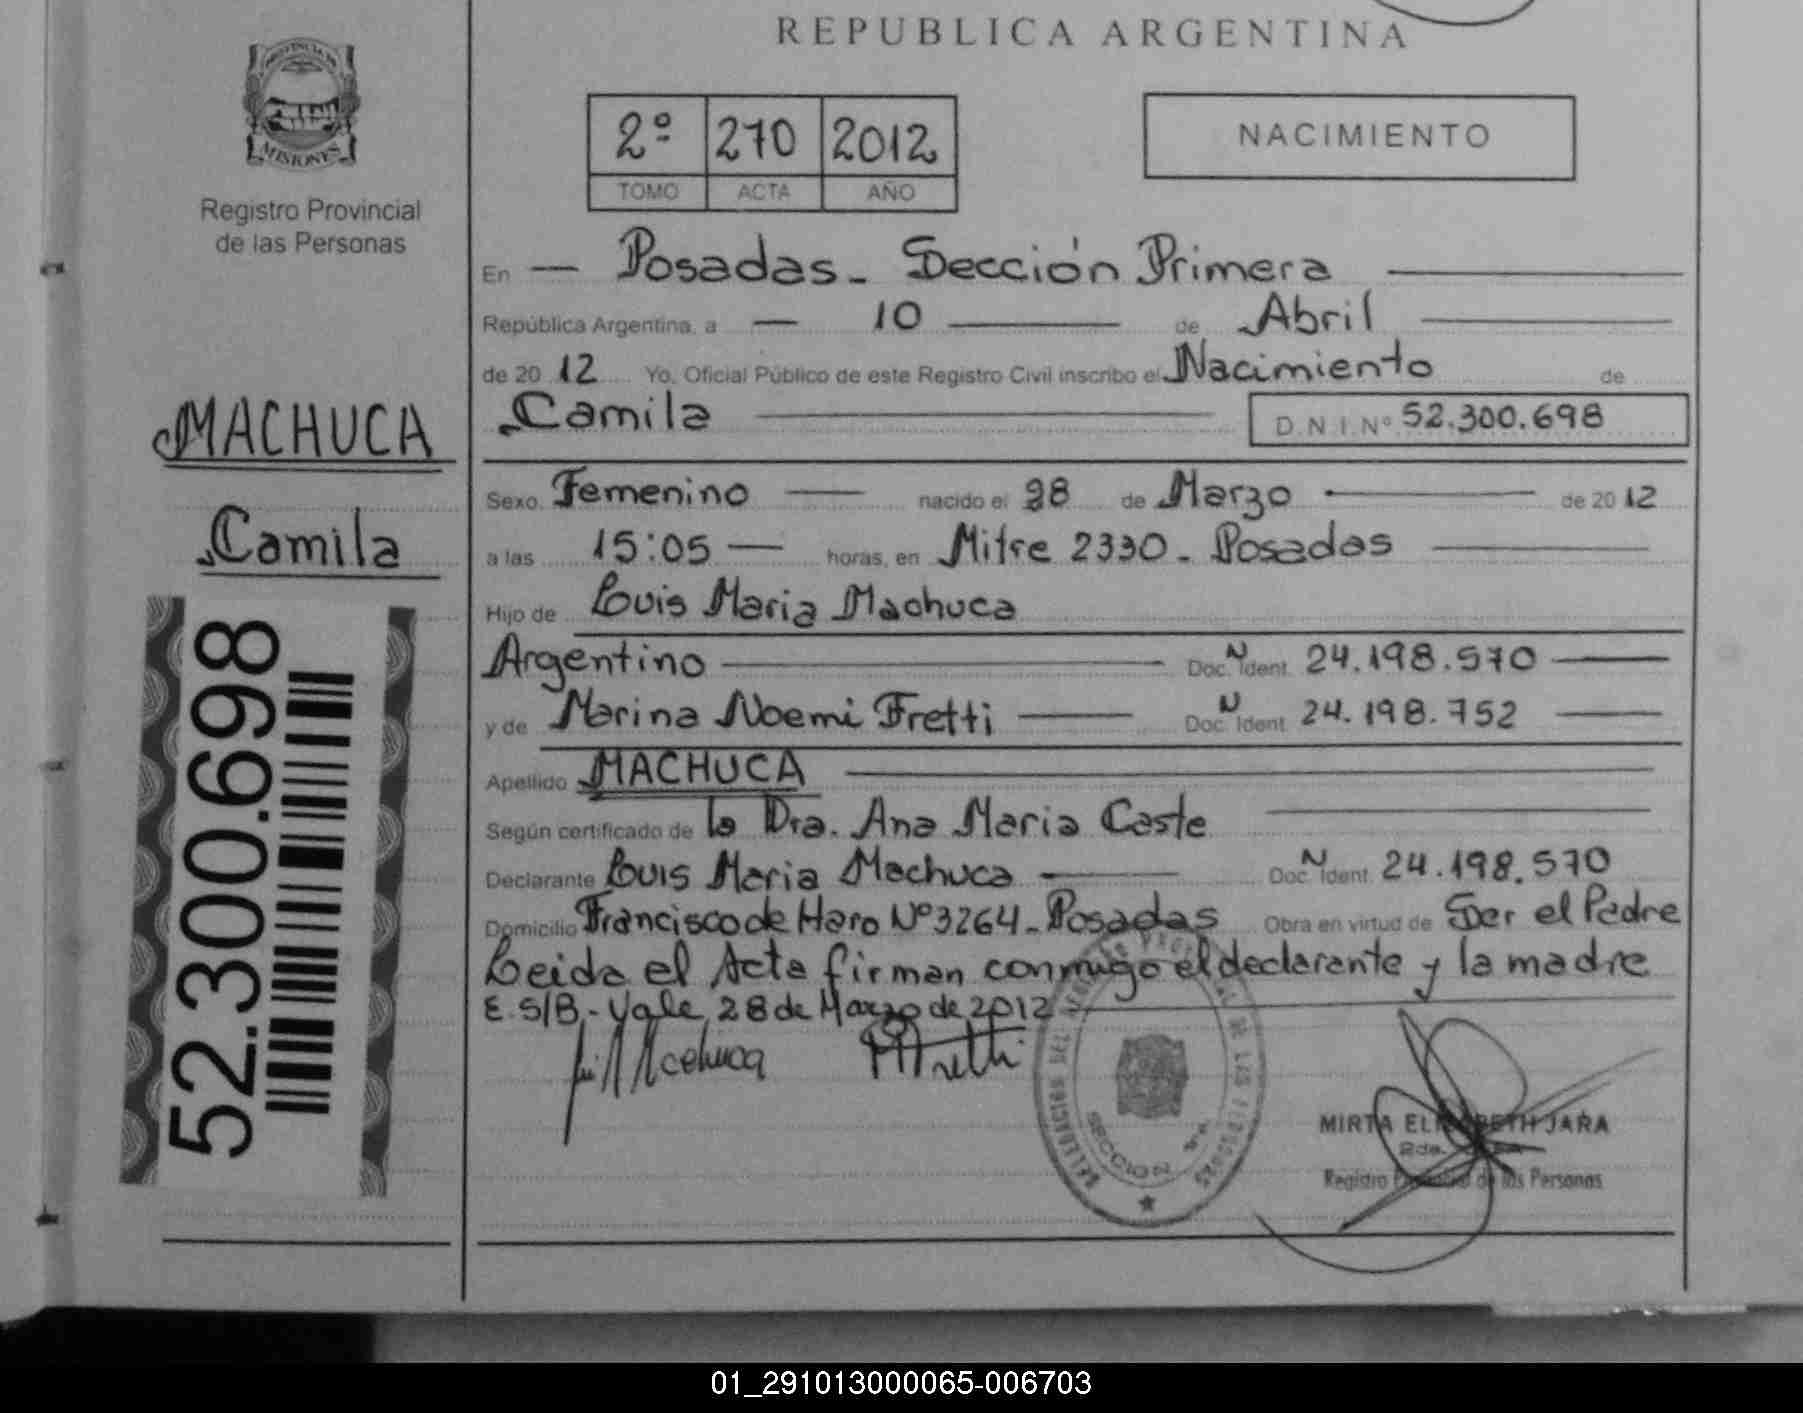 REPUBLICA ARGENTINA
PROVINCIA DE
MISIONES
Registro Provincial
de las Personas
2º 270 2012
TOMO ACTA AÑO
NACIMIENTO
En — Posadas - Sección Primera
República Argentina, a — 10 — de Abril
de 20 12 Yo, Oficial Público de este Registro Civil inscribo el Nacimiento de
Camila
D.N.I. Nº 52.300.698
MACHUCA
Camila
52.300.698
Sexo Femenino — nacido el 28 de Marzo — de 20 12
a las 15:05 — horas, en Mitre 2330 - Posadas
Hijo de Luis Maria Machuca
Argentino — Doc. N Ident. 24.198.570
y de Marina Noemi Fretti — Doc. N Ident. 24.198.752
Apellido MACHUCA
Según certificado de la Dra. Ana Maria Caste
Declarante Luis Maria Machuca — Doc. N Ident. 24.198.570
Domicilio Francisco de Haro Nº 3264 - Posadas Obra en virtud de Ser el Padre
Leida el Acta firman conmigo el declarante y la madre
E. S/B.- Vale 28 de Marzo de 2012
Machuca
MFretti
SECCION 1ra.
MIRTA ELIZABETH JARA
Registro Provincial de las Personas
01_291013000065-006703